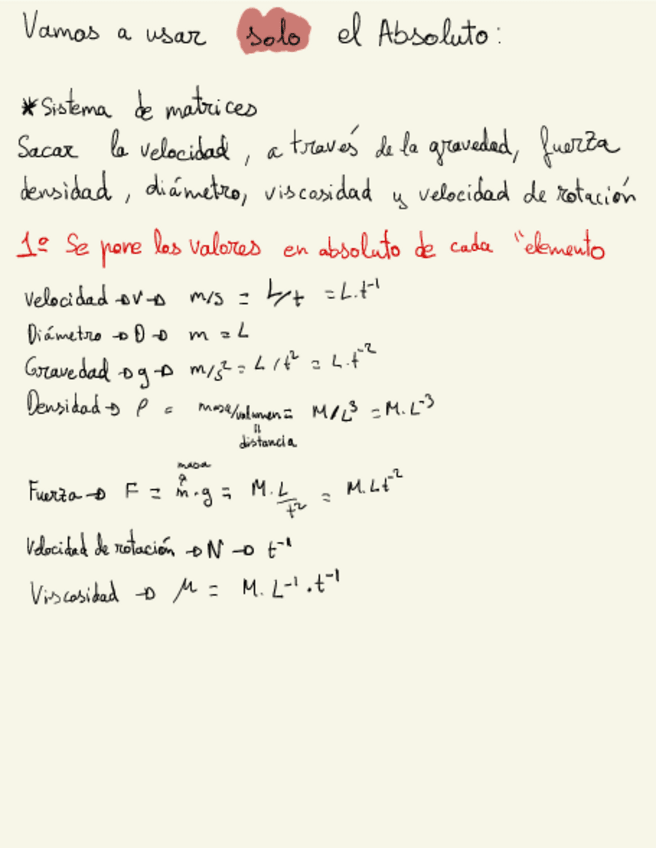 Vamos a usar solo el Absoluto:
*Sistema de matrices
Sacar la velocidad, a través de la gravedad, fuerza
densidad, diámetro, viscosidad y velocidad de rotación
1º Se pone los valores en absoluto de cada "elemento
Velocidad → v → m/s = L/t = L.t⁻¹
Diámetro → D → m = L
Gravedad → g → m/s² = L/t² = L.t⁻²
Densidad → ρ = masa/volumen = M/L³ = M.L⁻³
=
distancia
masa
Fuerza → F = m.g = M.L/t² = M.Lt⁻²
Velocidad de rotación → N → t⁻¹
Viscosidad → μ = M.L⁻¹.t⁻¹